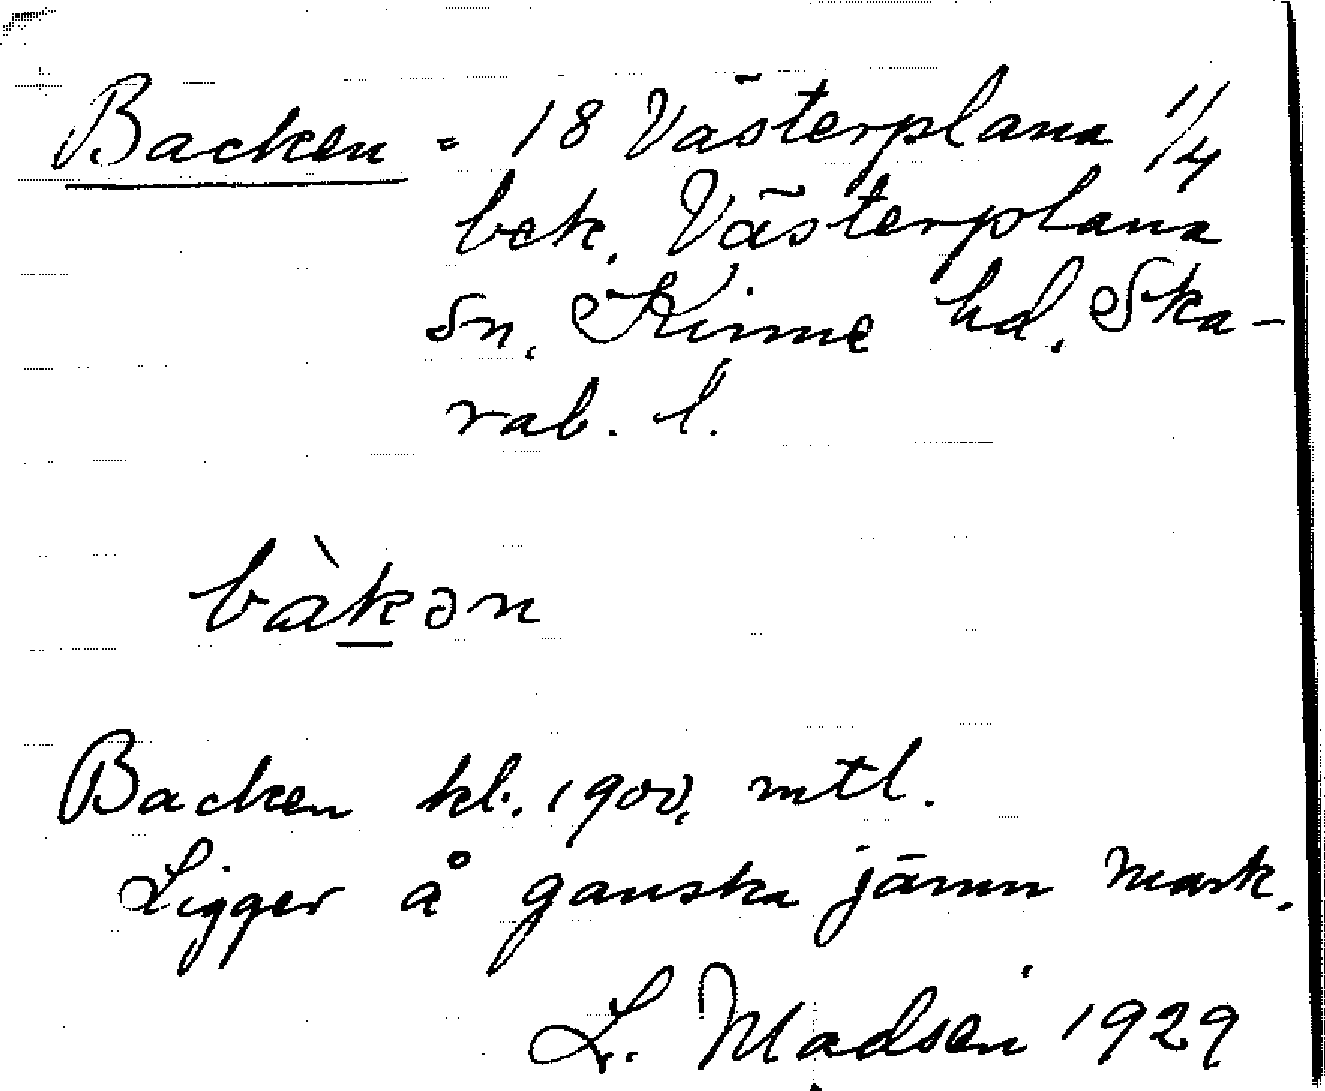 Backen = 18 Västerplana 1/4
bek. Västerplana
sn. Kinne hd. Ska-
rab. l.
bàkən
Backen kl. 1900, mtl.
Ligger å ganska jämn mark.
L. Madsén 1929